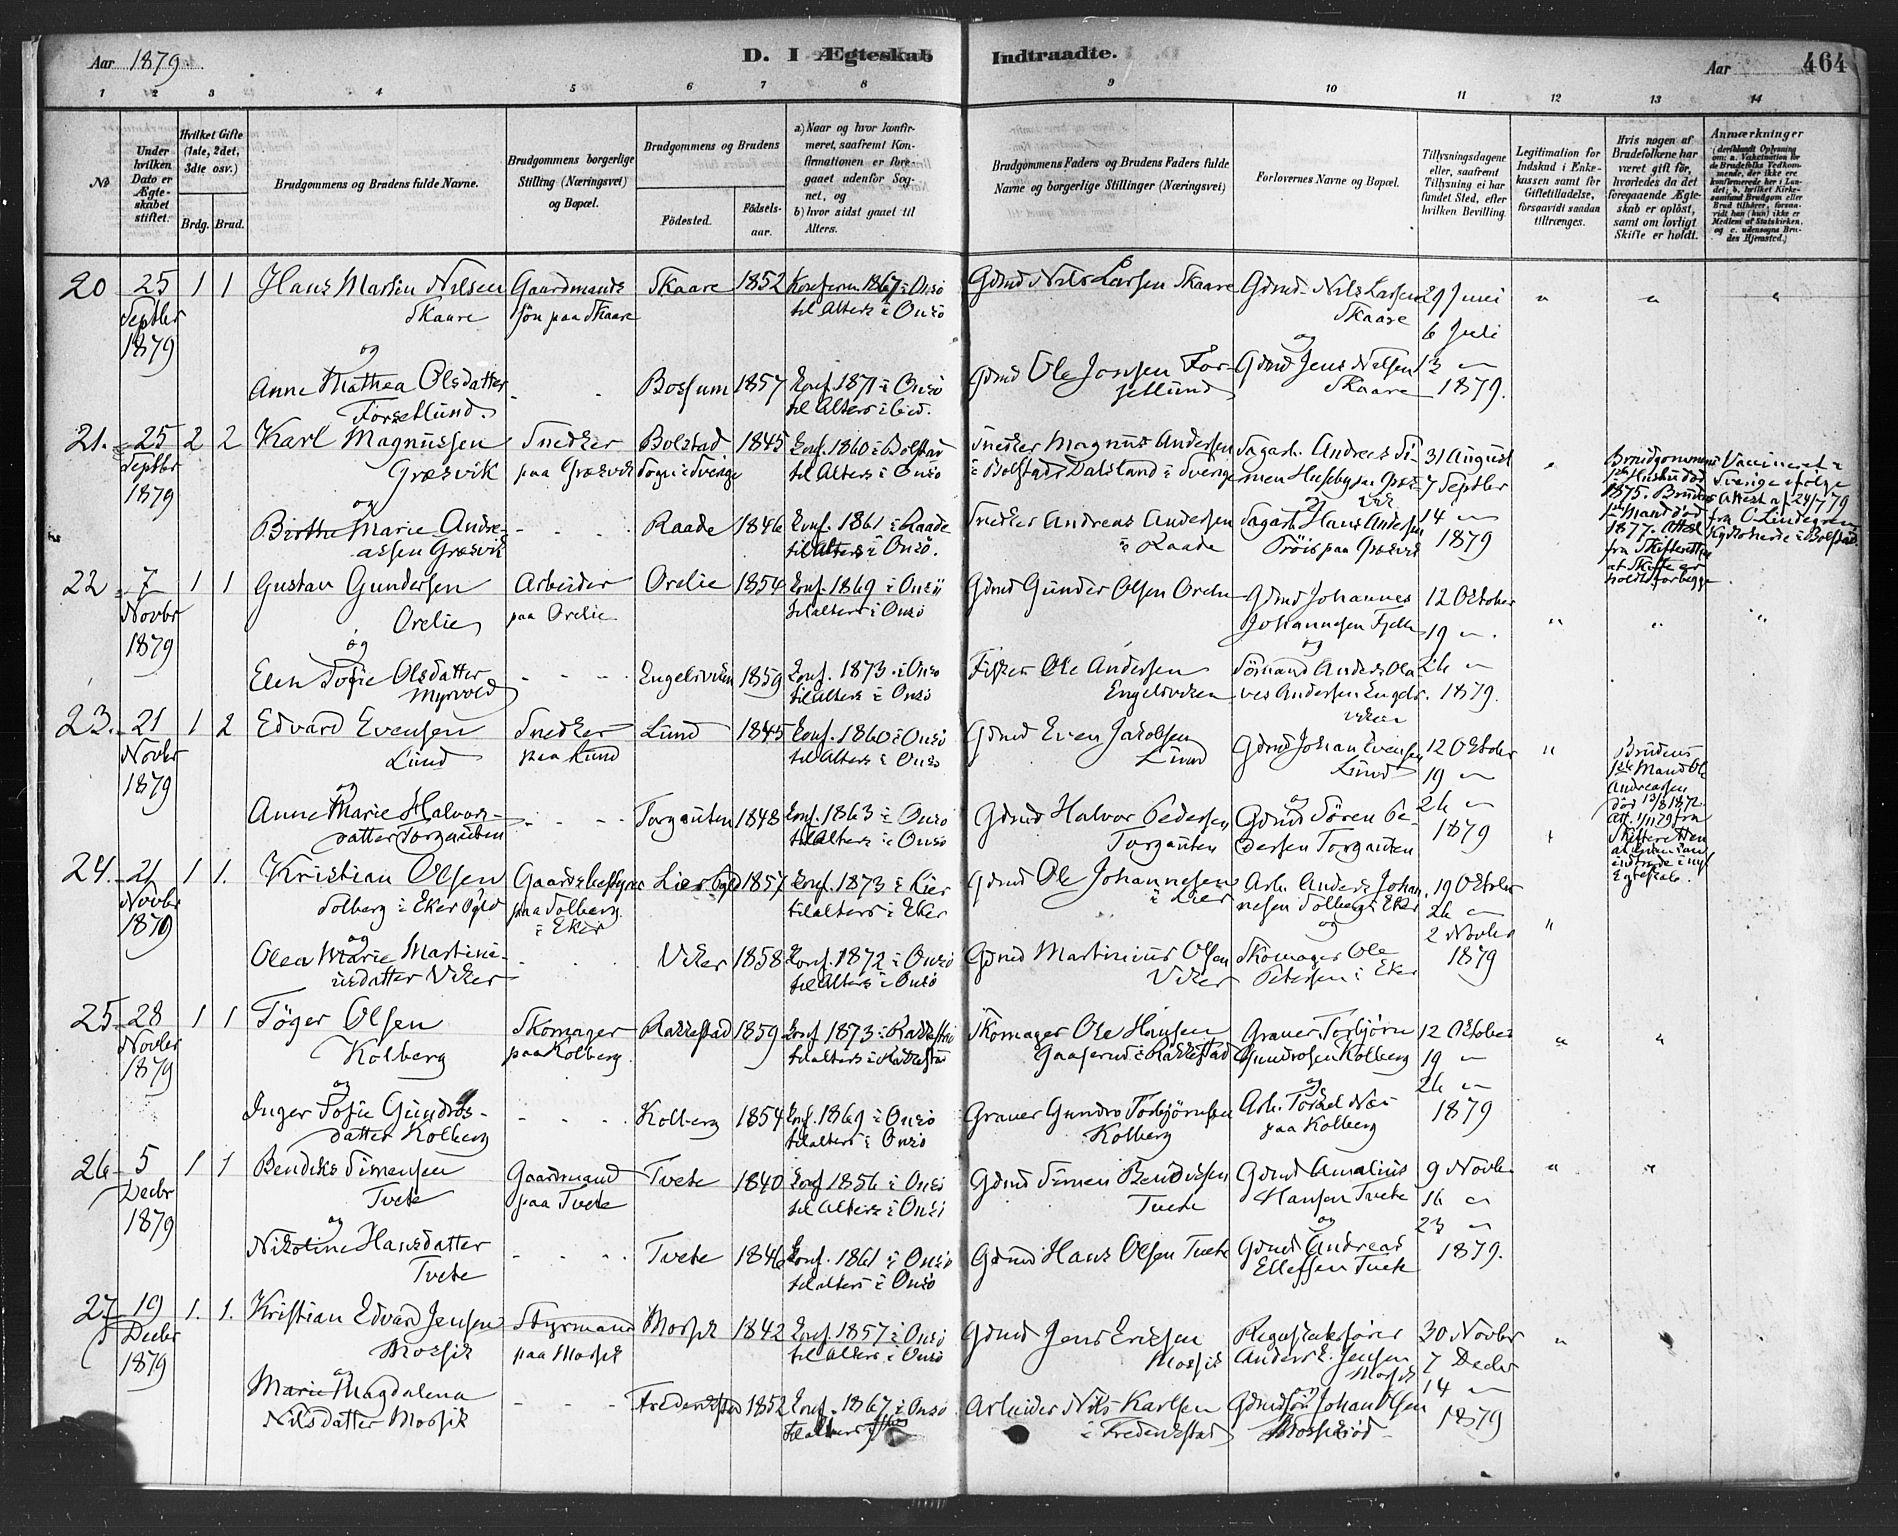 Aar 1879
D. I Ægteskab Indtraadte.
Aar
464
1 2 3 4 5 6 7 8 9 10 11 12 13 14
No
Under hvilken Dato er Ægteskabet stiftet.
Hvilket Gifte (1ste, 2det, 3die osv.)
Brdg. Brud.
Brudgommens og Brudens fulde Navne.
Brudgommens borgerlige Stilling (Næringsvei) og Bopæl.
Brudgommens og Brudens
Fødested.
Fødselsaar.
a) Naar og hvor konfirmeret, saafremt Konfirmationen er foregaaet udenfor Sognet, og
b) hvor sidst gaaet til Alters.
Brudgommens Faders og Brudens Faders fulde Navne og borgerlige Stillinger (Næringsvei)
Forlovernes Navne og Bopæl.
Tillysningsdagene eller, saafremt Tillysning ei har fundet Sted, efter hvilken Bevilling.
Legitimation for Indskud i Enkekassen samt for Giftetilladelse, forsaavidt saadan tiltrænges.
Hvis nogen af Brudefolkene har været gift før, hvorledes da det foregaaende Ægteskab er opløst, samt om lovligt Skifte er holdt.
Anmærkninger
(deriblandt Oplysning om: a. Vakcination for de Brudefolks Vedkommende, der ikke ere konfirmerede her i Landet; b. hvilket Kirkesamfund Brudgom eller Brud tilhører, forsaavidt han (hun) ikke er Medlem af Statskirken, og c. udensogns Brudes Hjemsted.)
20 25 Septbr 1879 1 1 Hans Martin Nilsen Skaare
Gaardmands søn paa Skaare Skaare 1852 Konferm. 1867 i Onsö til Alters i Onsö
Gdmd Nils Larsen Skaare
Gdmd. Nils Larsen Skaare
29 Juni 6 Juli 13 — 1879.
" " "
og
Anne Mathea Olsdatter Forsetlund.
Bossum 1857 Konf. 1871 i Onsö til Alters ibid.
Gdmd Ole Jonsen Forsetlund
og Gdmd Jens Nilsen Skaare
21. 25 Septbr 1879 2 2 Karl Magnussen Græsvik
Snedker paa Græsvik Bolstad Sogn i Sverige 1845 Konf. 1860 i Bolstad til Alters i Onsö
Snedker Magnus Andersen i Bolstad, Dalsland i Sverige
Sagarb. Andreas Simen Huseby paa Græsvik
31 August 7 Septbr 14 — 1879
"
Brudgommens 1ste Hustru död 1875. Brudens 1ste Mand död 1877. Attest fra Skifteretten at Skifte er holdt for begge
Vaccineret i Sverige ifølge Attest af 24/7 79 fra C. Lindegren Kyrkoherde i Bolstad.
og
Birthe Marie Andreassen Græsvik
Raade 1846 Konf. 1861 i Raade til Alters i Onsö.
Snedker Andreas Andersen i Raade
og Sagarb. Hans Andersen Pröis paa Græsvik
22 7 Novbr 1879 1 1 Gustav Gundersen Orelie
Arbeider paa Orelie Orelie 1854 Konf. 1869 i Onsö til alters i Onsö
Gdmd Gunder Olsen Orelie
Gdmd Johannes Johannesen Fjelle
12 Oktober 19 — 26 — 1879.
" " "
og
Elen Sofie Olsdatter Myrvold
Engelsviken 1859 Konf. 1873 i Onsö til Alters i Onsö
Fisker Ole Andersen Engelsviken
og Sömand Anders Olaves Andersen Engelsviken
23. 21 Novbr 1879 1 2 Edvard Evensen Lund
Snedker paa Lund Lund 1845 Konf. 1860 i Onsö til Alters i Onsö
Gdmd Even Jakobsen Lund
Gdmd Johan Evensen Lund
12 Oktober 19 — 26 — 1879
"
Brudens 1ste Mand Ole Andreassen död 13/8 1872. Att. 1/11 79 fra Skifteretten at hun kan indtræde i nyt Egteskab.
og
Anne Marie Halvorsdatter Torgauten
Torgauten 1848 Konf. 1863 i Onsö til Alters i Onsö
Gdmd Halvor Pedersen Torgauten
og Gdmd Sören Pedersen Torgauten
24. 21 Novbr 1879 1 1. Kristian Olsen Solberg i Eker Pgld
Gaardsbestyrer paa Solberg i Eker Lier Pgld 1857 Konf. 1873 i Lier til alters i Eker
Gdmd Ole Johannesen i Lier
Arb. Anders Johannesen Solberg i Eker
19 Oktober 26 — 2 Novbr 1879
"
og
Olea Marie Martiniusdatter Viker
Viker 1858 Konf. 1872 i Onsö til Alters i Onsö
Gdmd Martinius Olsen Viker
og Skomager Ole Petersen i Eker
25 28 Novbr 1879 1 1 Töger Olsen Kolberg
Skomager paa Kolberg. Rakkestad 1859 Konf 1873 i Rakkestad til alters i Rakkestad
Skomager Ole Hansen Gaaserud i Rakkestad
Graver Torbjörn Gundrosen Kolberg
12 Oktober 19 — 26 — 1879
" "
og
Inger Sofie Gundrosdatter Kolberg
Kolberg 1854 Konf. 1869 i Onsö til alters i Onsö
Graver Gundro Torbjörnsen Kolberg
og Arb. Torkel Næs paa Kolberg
26 5 Decbr 1879 1 1 Bendiks Simensen Tvete
Gaardmand paa Tvete Tvete 1840 Konf 1856 i Onsö til Alters i Onsö
Gdmd Simen Bendiksen Tvete
Gdmd Amalius Hansen Tvete
9 Novbr 16 — 23 — 1879.
" "
og
Nikoline Hansdatter Tvete
Tvete 1846 Konf. 1861 i Onsö til alters i Onsö
Gdmd Hans Olsen Tvete
og Gdmd Andreas Ellefsen Tvete
27 19 Decbr 1879 1. 1. Kristian Edvard Jensen Mossik
Styrmand paa Mossik Mossik 1842 Konf. 1857 i Onsö til Alters i Onsö
Gdmd Jens Ericsen Mossik
Regnskabsförer Anders E. Jensen Mossik
30 Novbr 7 Decbr 14 — 1879
"
og
Marie Magdalena Nilsdatter Mossik
Frederikstad 1852 Konf. 1867 i Onsö til alters
Arbeider Nils Karlsen i Frederikstad
og Gdmdsön Johan Olsen